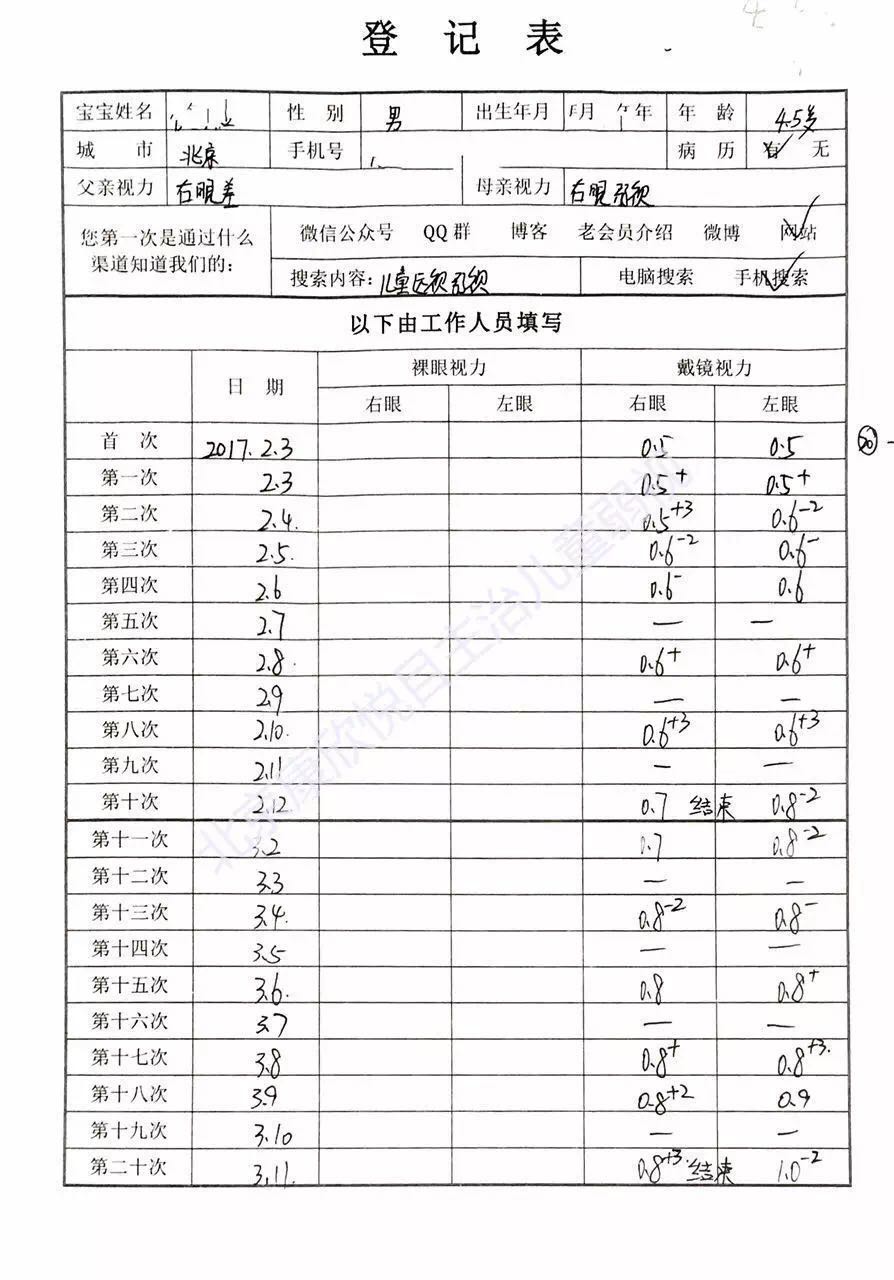 登 记 表
宝宝姓名 性 别 男 出生年月 月 年 年 龄 4.5岁
城 市 北京 手机号 病 历 有 无
父亲视力 右眼差 母亲视力 右眼弱视
您第一次是通过什么渠道知道我们的: 微信公众号 QQ 群 博客 老会员介绍 微博 网站
搜索内容: 儿童远视弱视 电脑搜索 手机搜索
以下由工作人员填写
日 期 裸眼视力 戴镜视力
右眼 左眼 右眼 左眼
首 次 2017.2.3 0.5 0.5
第一次 2.3 0.5+ 0.5+
第二次 2.4. 0.5+3 0.6-2
第三次 2.5. 0.6-2 0.6-
第四次 2.6 0.6- 0.6
第五次 2.7 — —
第六次 2.8. 0.6+ 0.6+
第七次 2.9 — —
第八次 2.10. 0.6+3 0.6+3
第九次 2.11 — —
第十次 2.12 0.7 结束 0.8-2
第十一次 3.2 0.7 0.8-2
第十二次 3.3 — —
第十三次 3.4. 0.8-2 0.8-
第十四次 3.5 — —
第十五次 3.6. 0.8 0.8+
第十六次 3.7 — —
第十七次 3.8 0.8+ 0.8+3.
第十八次 3.9 0.8+2 0.9
第十九次 3.10 — —
第二十次 3.11. 0.8+3. 结束 1.0-2
北京康欣悦目主治儿童弱视